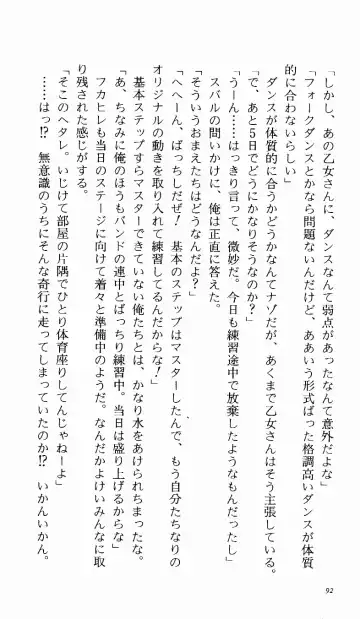 「しかし、あの乙女さんに、ダンスなんて弱点があったなんて意外だよな」
「フォークダンスとかなら問題ないんだけど、ああいう形式ばった格調高いダンスが体質
的に合わないらしい」
ダンスが体質的に合うかどうかなんてナゾだが、あくまで乙女さんはそう主張している。
「で、あと5日でどうにかなりそうなのか？」
「うーん……はっきり言って、微妙だ。今日も練習途中で放棄したようなもんだったし」
スバルの問いかけに、俺は正直に答えた。
「そういうおまえたちはどうなんだよ？」
「へへーん、ばっちしだぜ！　基本のステップはマスターしたんで、もう自分たちなりの
オリジナルの動きを取り入れて練習してるんだからな！」
基本ステップすらマスターできていない俺たちとは、かなり水をあけられちまったな。
「あ、ちなみに俺のほうもバンドの連中とばっちり練習中。当日は盛り上げるからな」
フカヒレも当日のステージに向けて着々と準備中のようだ。なんだかよけいみんなに取
り残された感じがする。
「そこのヘタレ。いじけて部屋の片隅でひとり体育座りしてんじゃねーよ」
……はっ!?　無意識のうちにそんな奇行に走ってしまっていたのか!?　いかんいかん。
92